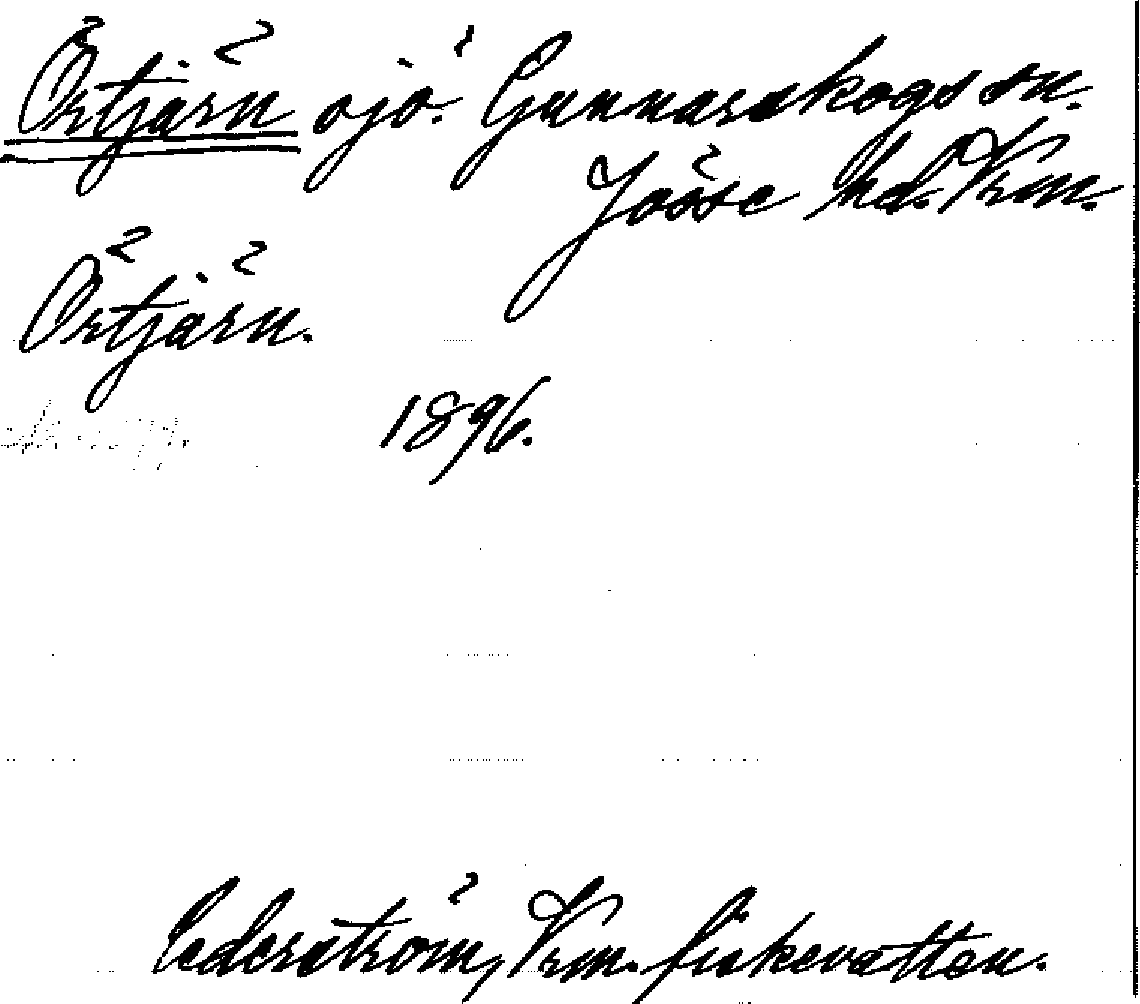 Örtjärn sjö. Gunnarskogs sn.
Jösse hd. Vrm.
Örtjärn.
1896.
Cederström, Vrm. fiskevatten.